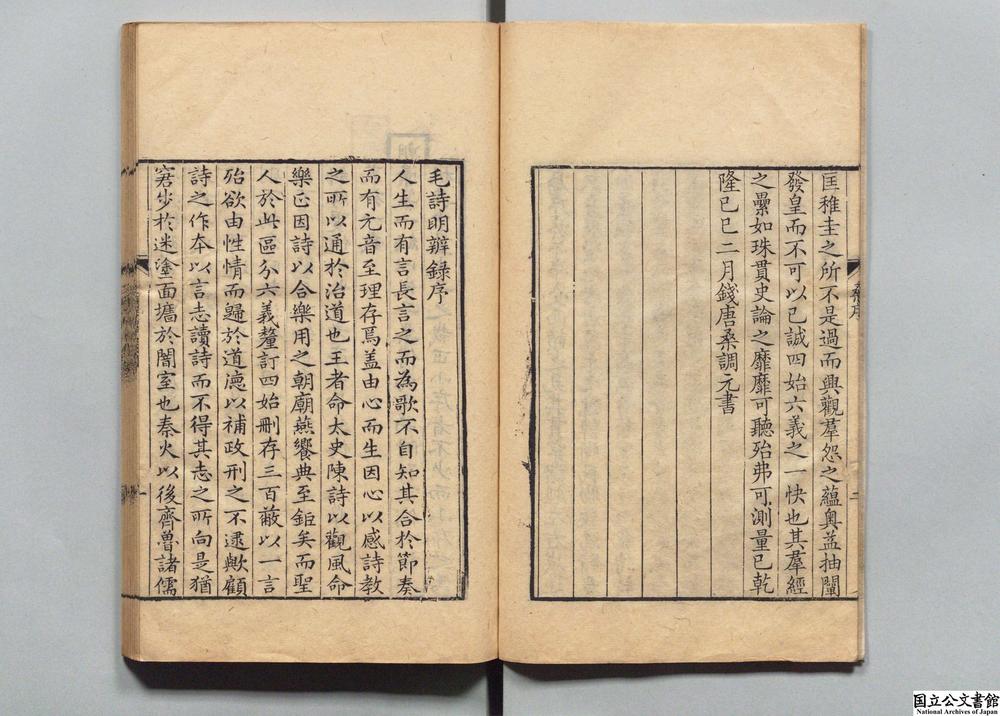 匡稚圭之所不是過而興觀羣怨之蘊奥益抽闡
發皇而不可以已誠四始六義之一快也其羣經
之纍如珠貫史論之靡靡可聽殆弗可測量已乾
隆己巳二月錢唐桑調元書
桑序
二
毛詩明辨録序
人生而有言長言之而為歌不自知其合於節奏
而有元音至理存焉盖由心而生因心以感詩教
之所以通於治道也王者命太史陳詩以觀風命
樂正因詩以合樂用之朝廟燕饗典至鉅矣而聖
人於此區分六義釐訂四始刪存三百蔽以一言
殆欲由性情而歸於道德以補政刑之不逮歟顧
詩之作本以言志讀詩而不得其志之所向是猶
窘步於迷塗面牆於闇室也秦火以後齊魯諸儒
国立公文書館
National Archives of Japan